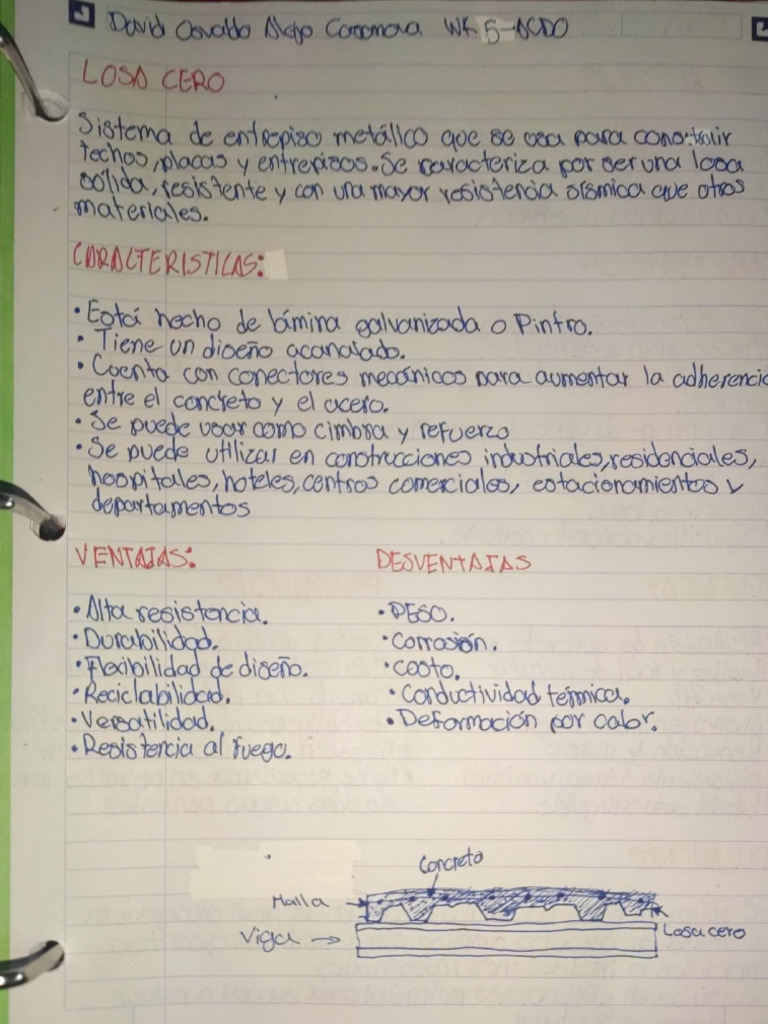 David Osvaldo Diego Casanova WK 5-ACDO
LOSA CERO
Sistema de entrepiso metálico que se usa para construir
techos, placas y entrepisos. Se caracteriza por ser una losa
sólida, resistente y con una mayor resistencia sísmica que otros
materiales.
CARACTERISTICAS:
• Está hecho de lámina galvanizada o Pintro.
• Tiene un diseño acanalado.
• Cuenta con conectores mecánicos para aumentar la adherencia
entre el concreto y el acero.
• Se puede usar como cimbra y refuerzo
• Se puede utilizar en construcciones industriales, residenciales,
hospitales, hoteles, centros comerciales, estacionamientos y
departamentos
VENTAJAS: DESVENTAJAS
• Alta resistencia. • PESO.
• Durabilidad. • Corrosión.
• Flexibilidad de diseño. • Costo.
• Reciclabilidad. • Conductividad térmica.
• Versatilidad. • Deformación por calor.
• Resistencia al fuego.
Concreto
Malla
Losa cero
Viga